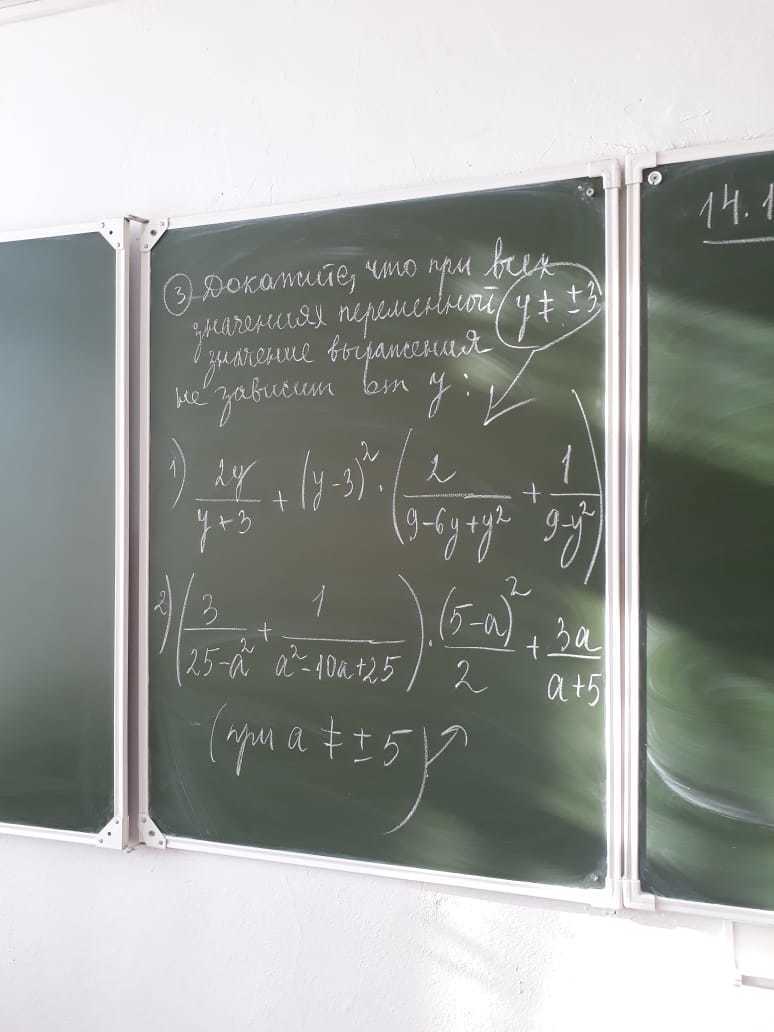 ③ Докажите, что при всех
значениях переменной y ≠ ±3
значение выражения
не зависит от y:
1) 2y/(y+3) + (y-3)² · (2/(9-6y+y²) + 1/(9-y²))
2) (3/(25-a²) + 1/(a²-10a+25)) · (5-a)²/2 + 3a/(a+5)
(при a ≠ ±5)
14.1